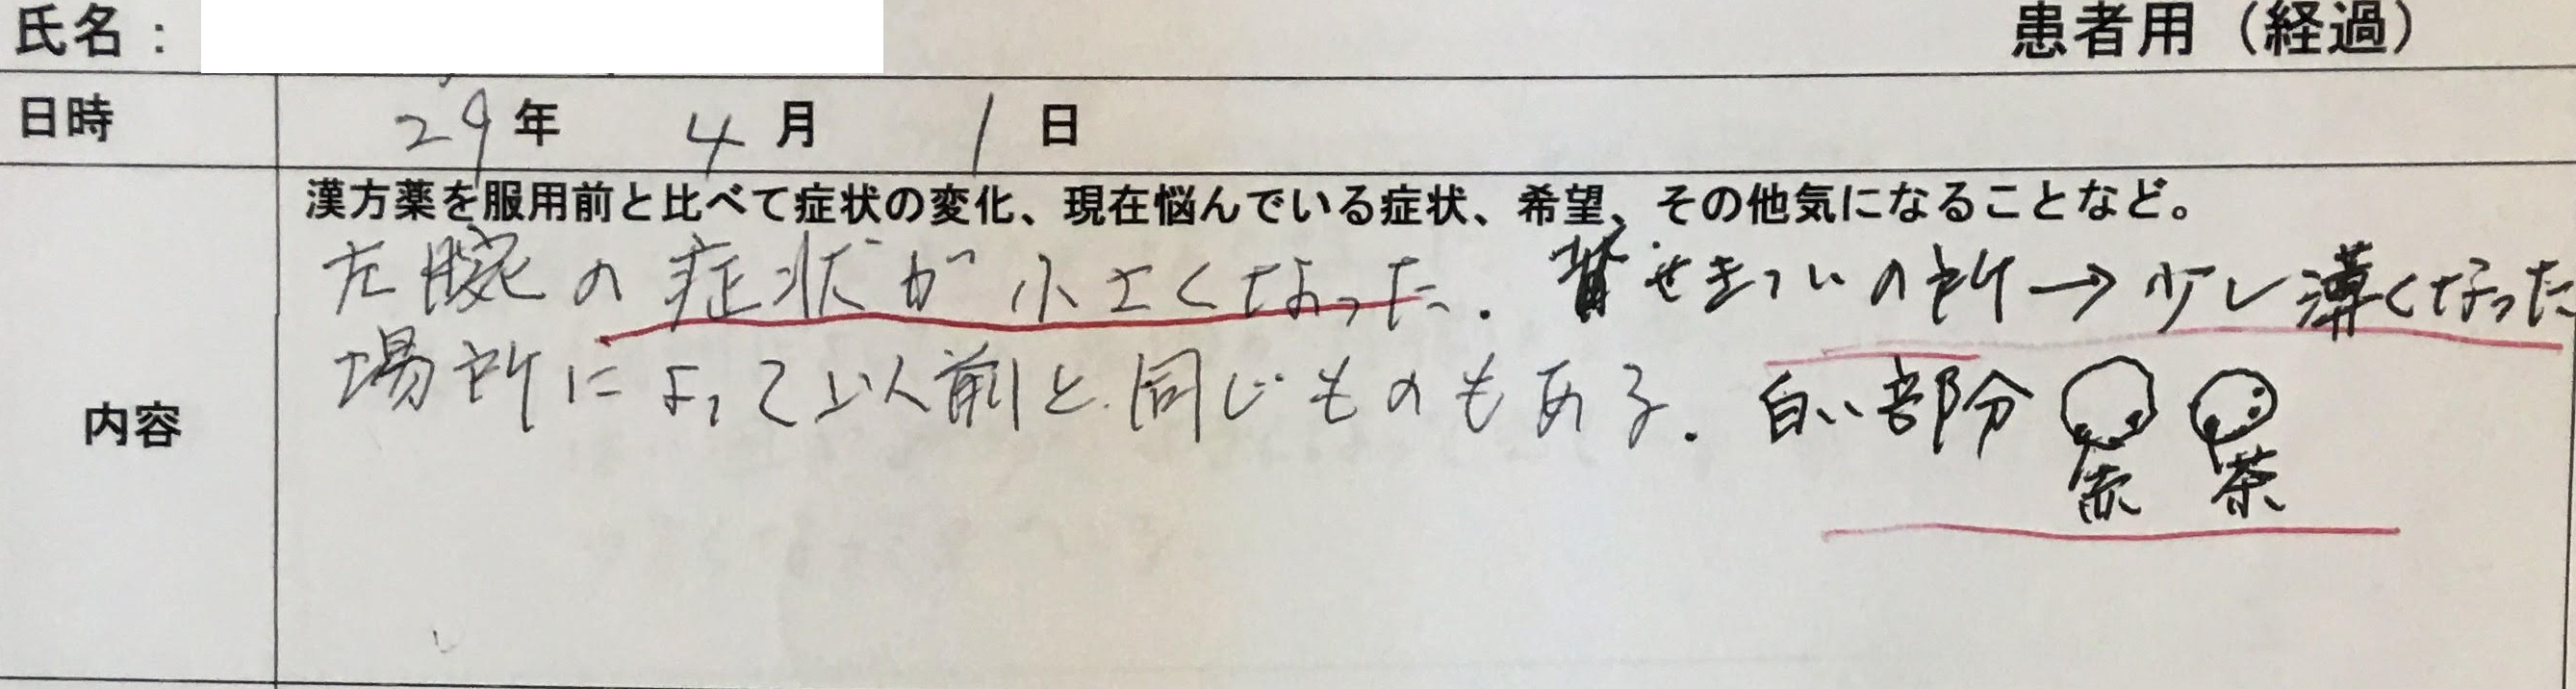 氏名：
患者用（経過）
日時 29年 4月 1日
漢方薬を服用前と比べて症状の変化、現在悩んでいる症状、希望、その他気になることなど。
左腕の症状が小さくなった. 背せきついの所→少し薄くなった
場所によって以前と同じものもある. 白い部分
赤 茶
内容